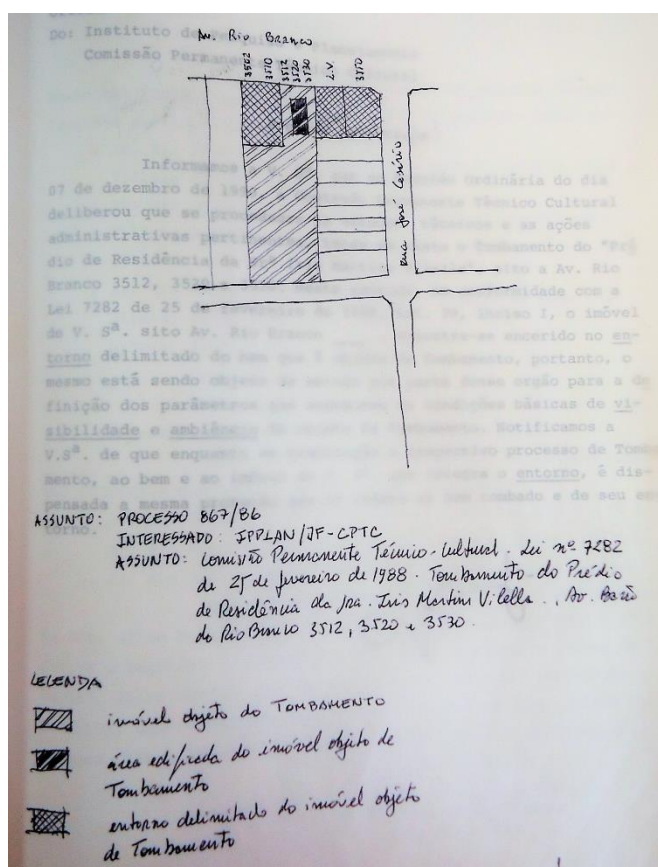 Do: Instituto de Pesquisa e Planejamento
Comissão Permanente
Av. Rio Branco
3502
3510
3512
3520
3530
L.V.
3550
Rua José Cesário
Informamos
07 de dezembro de
ordinária do dia
deliberou que se
Técnico Cultural
administrativas
e as ações
tombamento do "Pré
dio de Residência da
sito a Av. Rio
Branco 3512, 3520
conformidade com a
Lei 7282 de 25 de fevereiro de
o imóvel
de V. Sª. sito Av. Rio Branco
encerido no en-
torno delimitado do bem que é objeto de Tombamento, portanto, o
mesmo está sendo objeto de
orgão para a de
finição dos parâmetros que
condições básicas de vi-
sibilidade e ambiência do objeto de Tombamento. Notificamos a
V.Sª. de que enquanto
processo de Tomba
mento, ao bem e ao imóvel de
entorno, é dis-
pensada a mesma
bem tombado e de seu en
torno.
ASSUNTO: PROCESSO 867/86
INTERESSADO: IPPLAN/JF-CPTC
ASSUNTO: Comissão Permanente Técnico-Cultural - Lei nº 7282
de 25 de fevereiro de 1988 - Tombamento do Prédio
de Residência da Sra. Iris Martins Vilella ., Av. Barão
do Rio Branco 3512, 3520 e 3530.
LEGENDA
imóvel objeto do TOMBAMENTO
área edificada do imóvel objeto de
Tombamento
entorno delimitado do imóvel objeto
de Tombamento